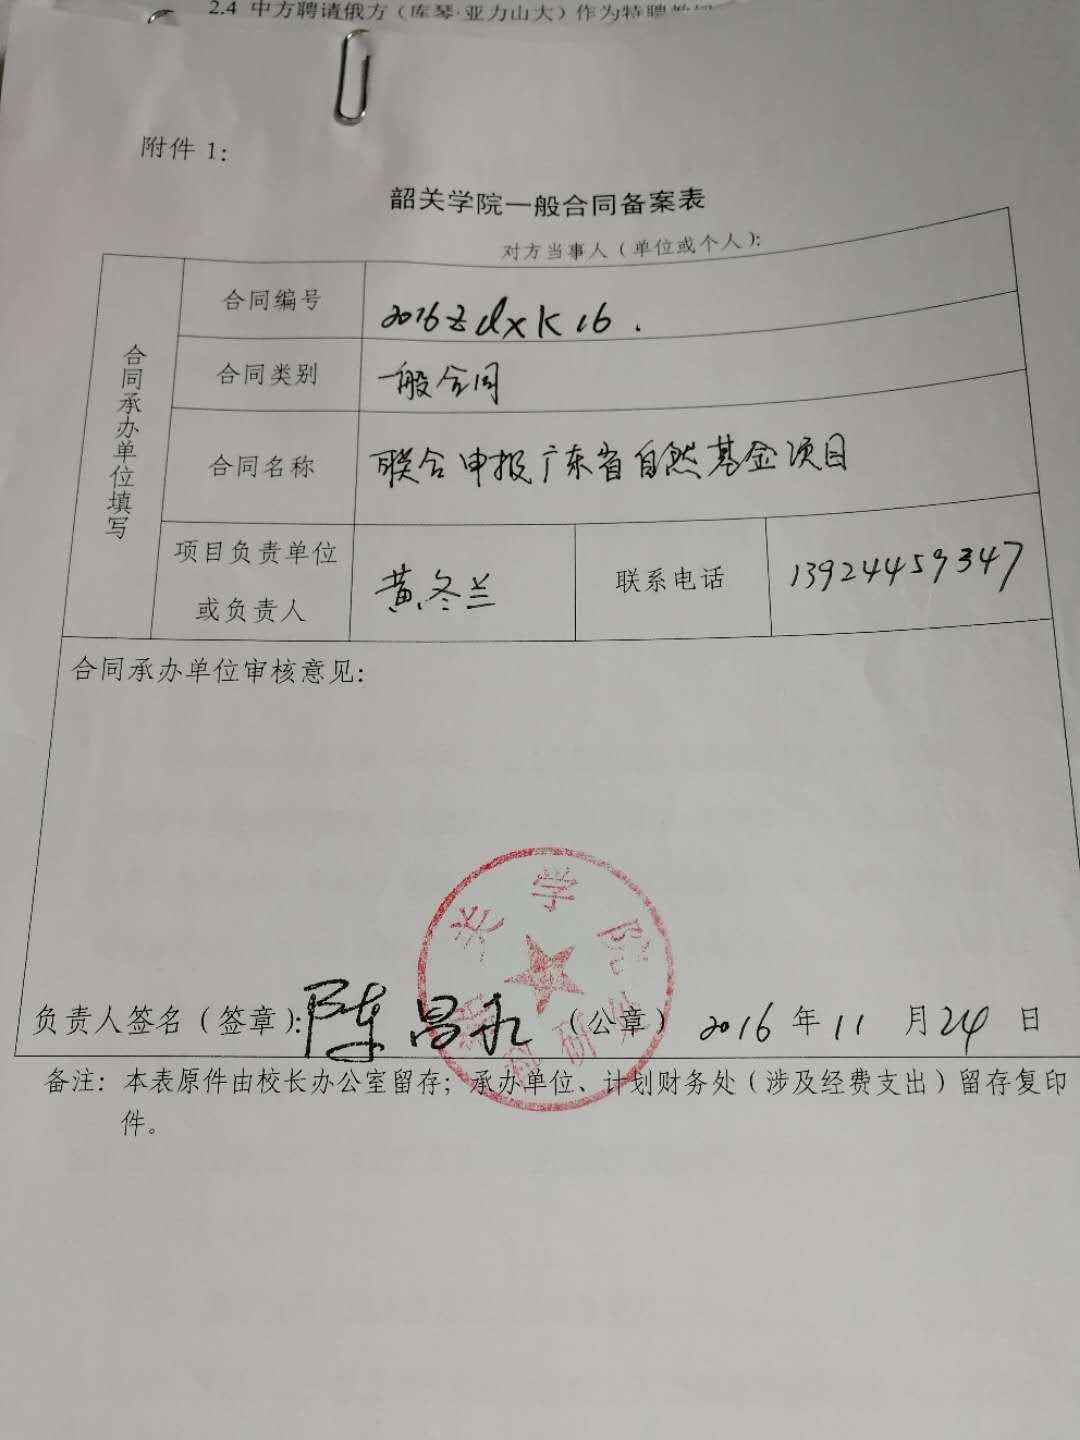 2.4 中方聘请俄方（库琴·亚力山大）作为特聘教授
附件 1:
韶关学院一般合同备案表
对方当事人（单位或个人）:
合同承办单位填写
合同编号 2016zdxk16.
合同类别 一般合同
合同名称 联合申报广东省自然基金项目
项目负责单位
或负责人 黄冬兰 联系电话 13924459347
合同承办单位审核意见:
韶关学院
科研处
负责人签名（签章）: 陈昌永 （公章） 2016 年 11 月 24 日
备注: 本表原件由校长办公室留存; 承办单位、计划财务处（涉及经费支出）留存复印
件。